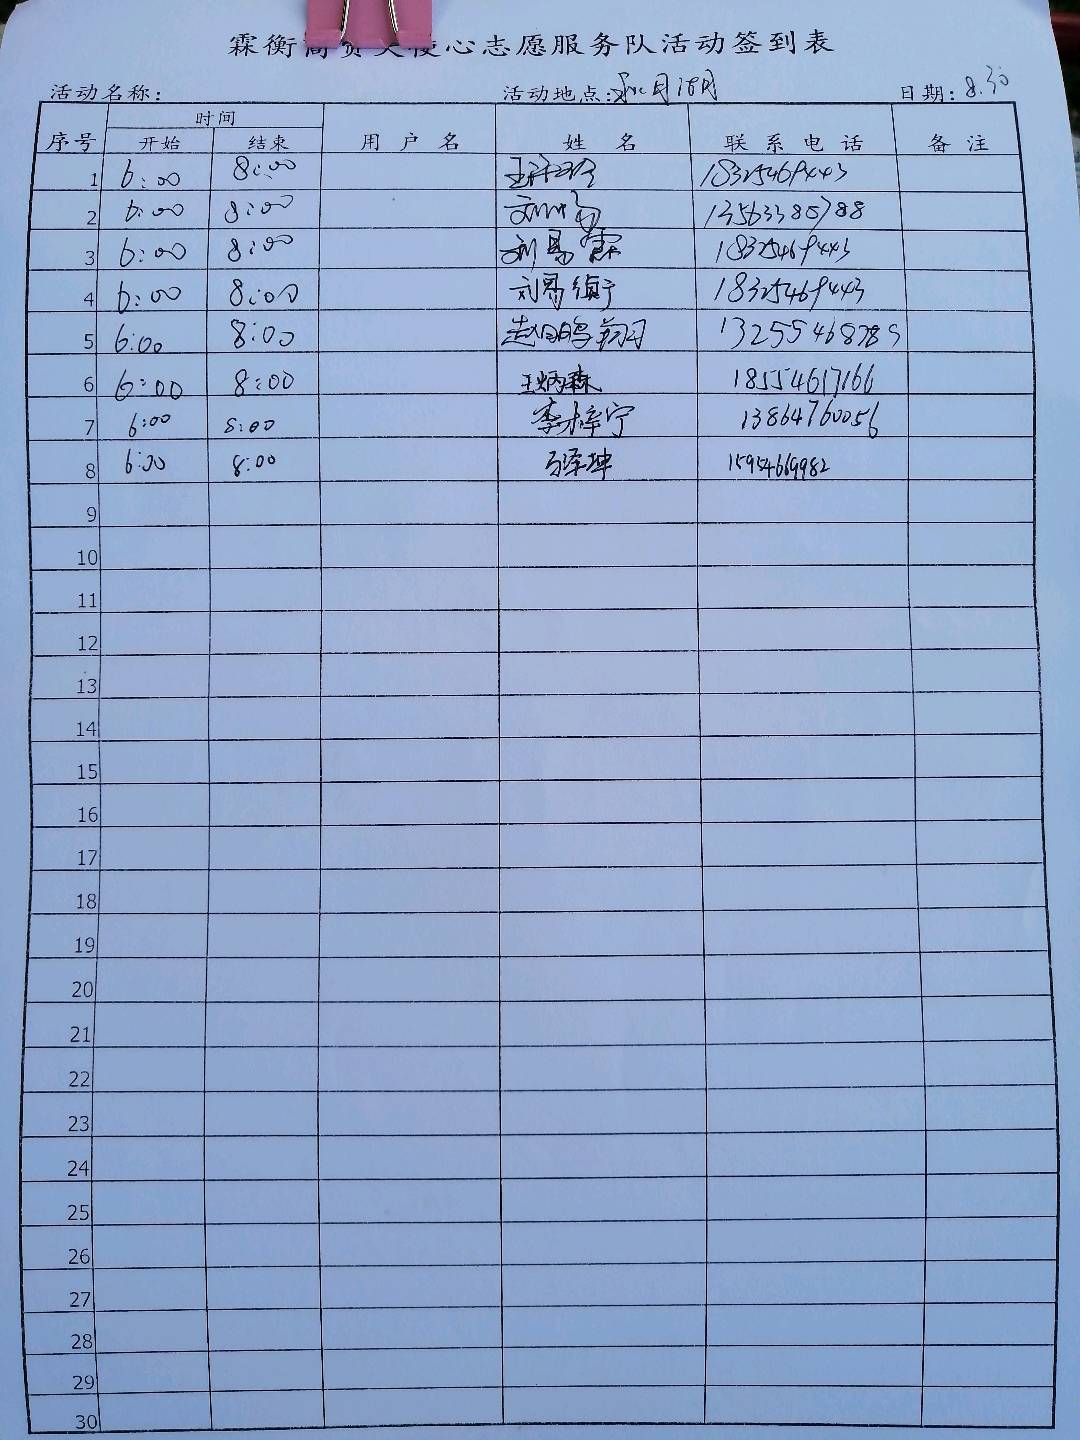 霖衡 心志愿服务队活动签到表
活动名称: 活动地点: 日期: 8.30
序号 时间 用户名 姓名 联系电话 备注
开始 结束
1 6:00 8:00 18325469443
2 6:00 8:00 13563385788
3 6:00 8:00 刘易霖 18325469443
4 6:00 8:00 刘易衡 18325469443
5 6:00 8:00 赵鹏翔 13255468789
6 6:00 8:00 王炳森 18554617166
7 6:00 8:00 李梓宁 13864760056
8 6:00 8:00 泽坤 15954669982
9
10
11
12
13
14
15
16
17
18
19
20
21
22
23
24
25
26
27
28
29
30